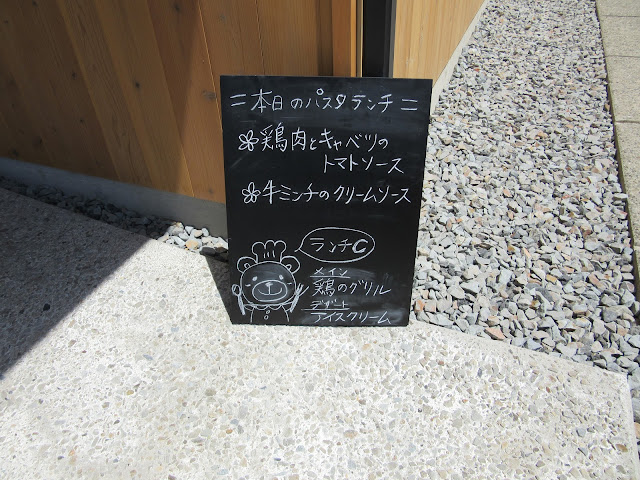 =本日のパスタランチ=
鶏肉とキャベツの
トマトソース
牛ミンチのクリームソース
ランチC
メイン
鶏のグリル
デザート
アイスクリーム